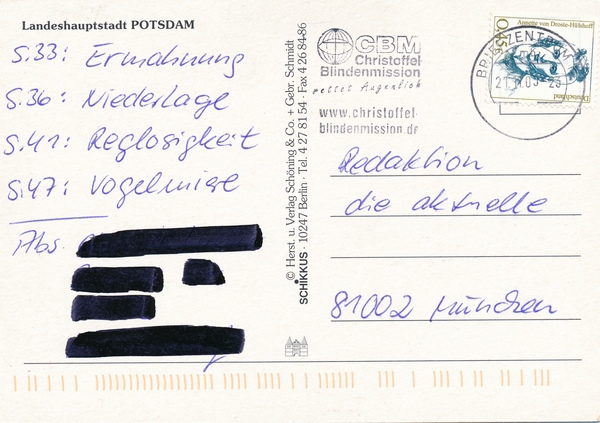 Landeshauptstadt POTSDAM
S.33: Ermahnung
S.36: Niederlage
S.41: Reglosigkeit
S.47: Vogelmiere
Abs.
© Herst. u. Verlag Schöning & Co. + Gebr. Schmidt
SCHIKKUS · 10247 Berlin · Tel. 4 27 81 54 · Fax 4 26 84-86
CBM
Christoffel
Blindenmission
rettet Augenlicht
www.christoffel-
blindenmission.de
BRIEFZENTRUM
Annette von Droste-Hülshoff
0,45
Deutschland
Redaktion
die aktuelle
81002 München